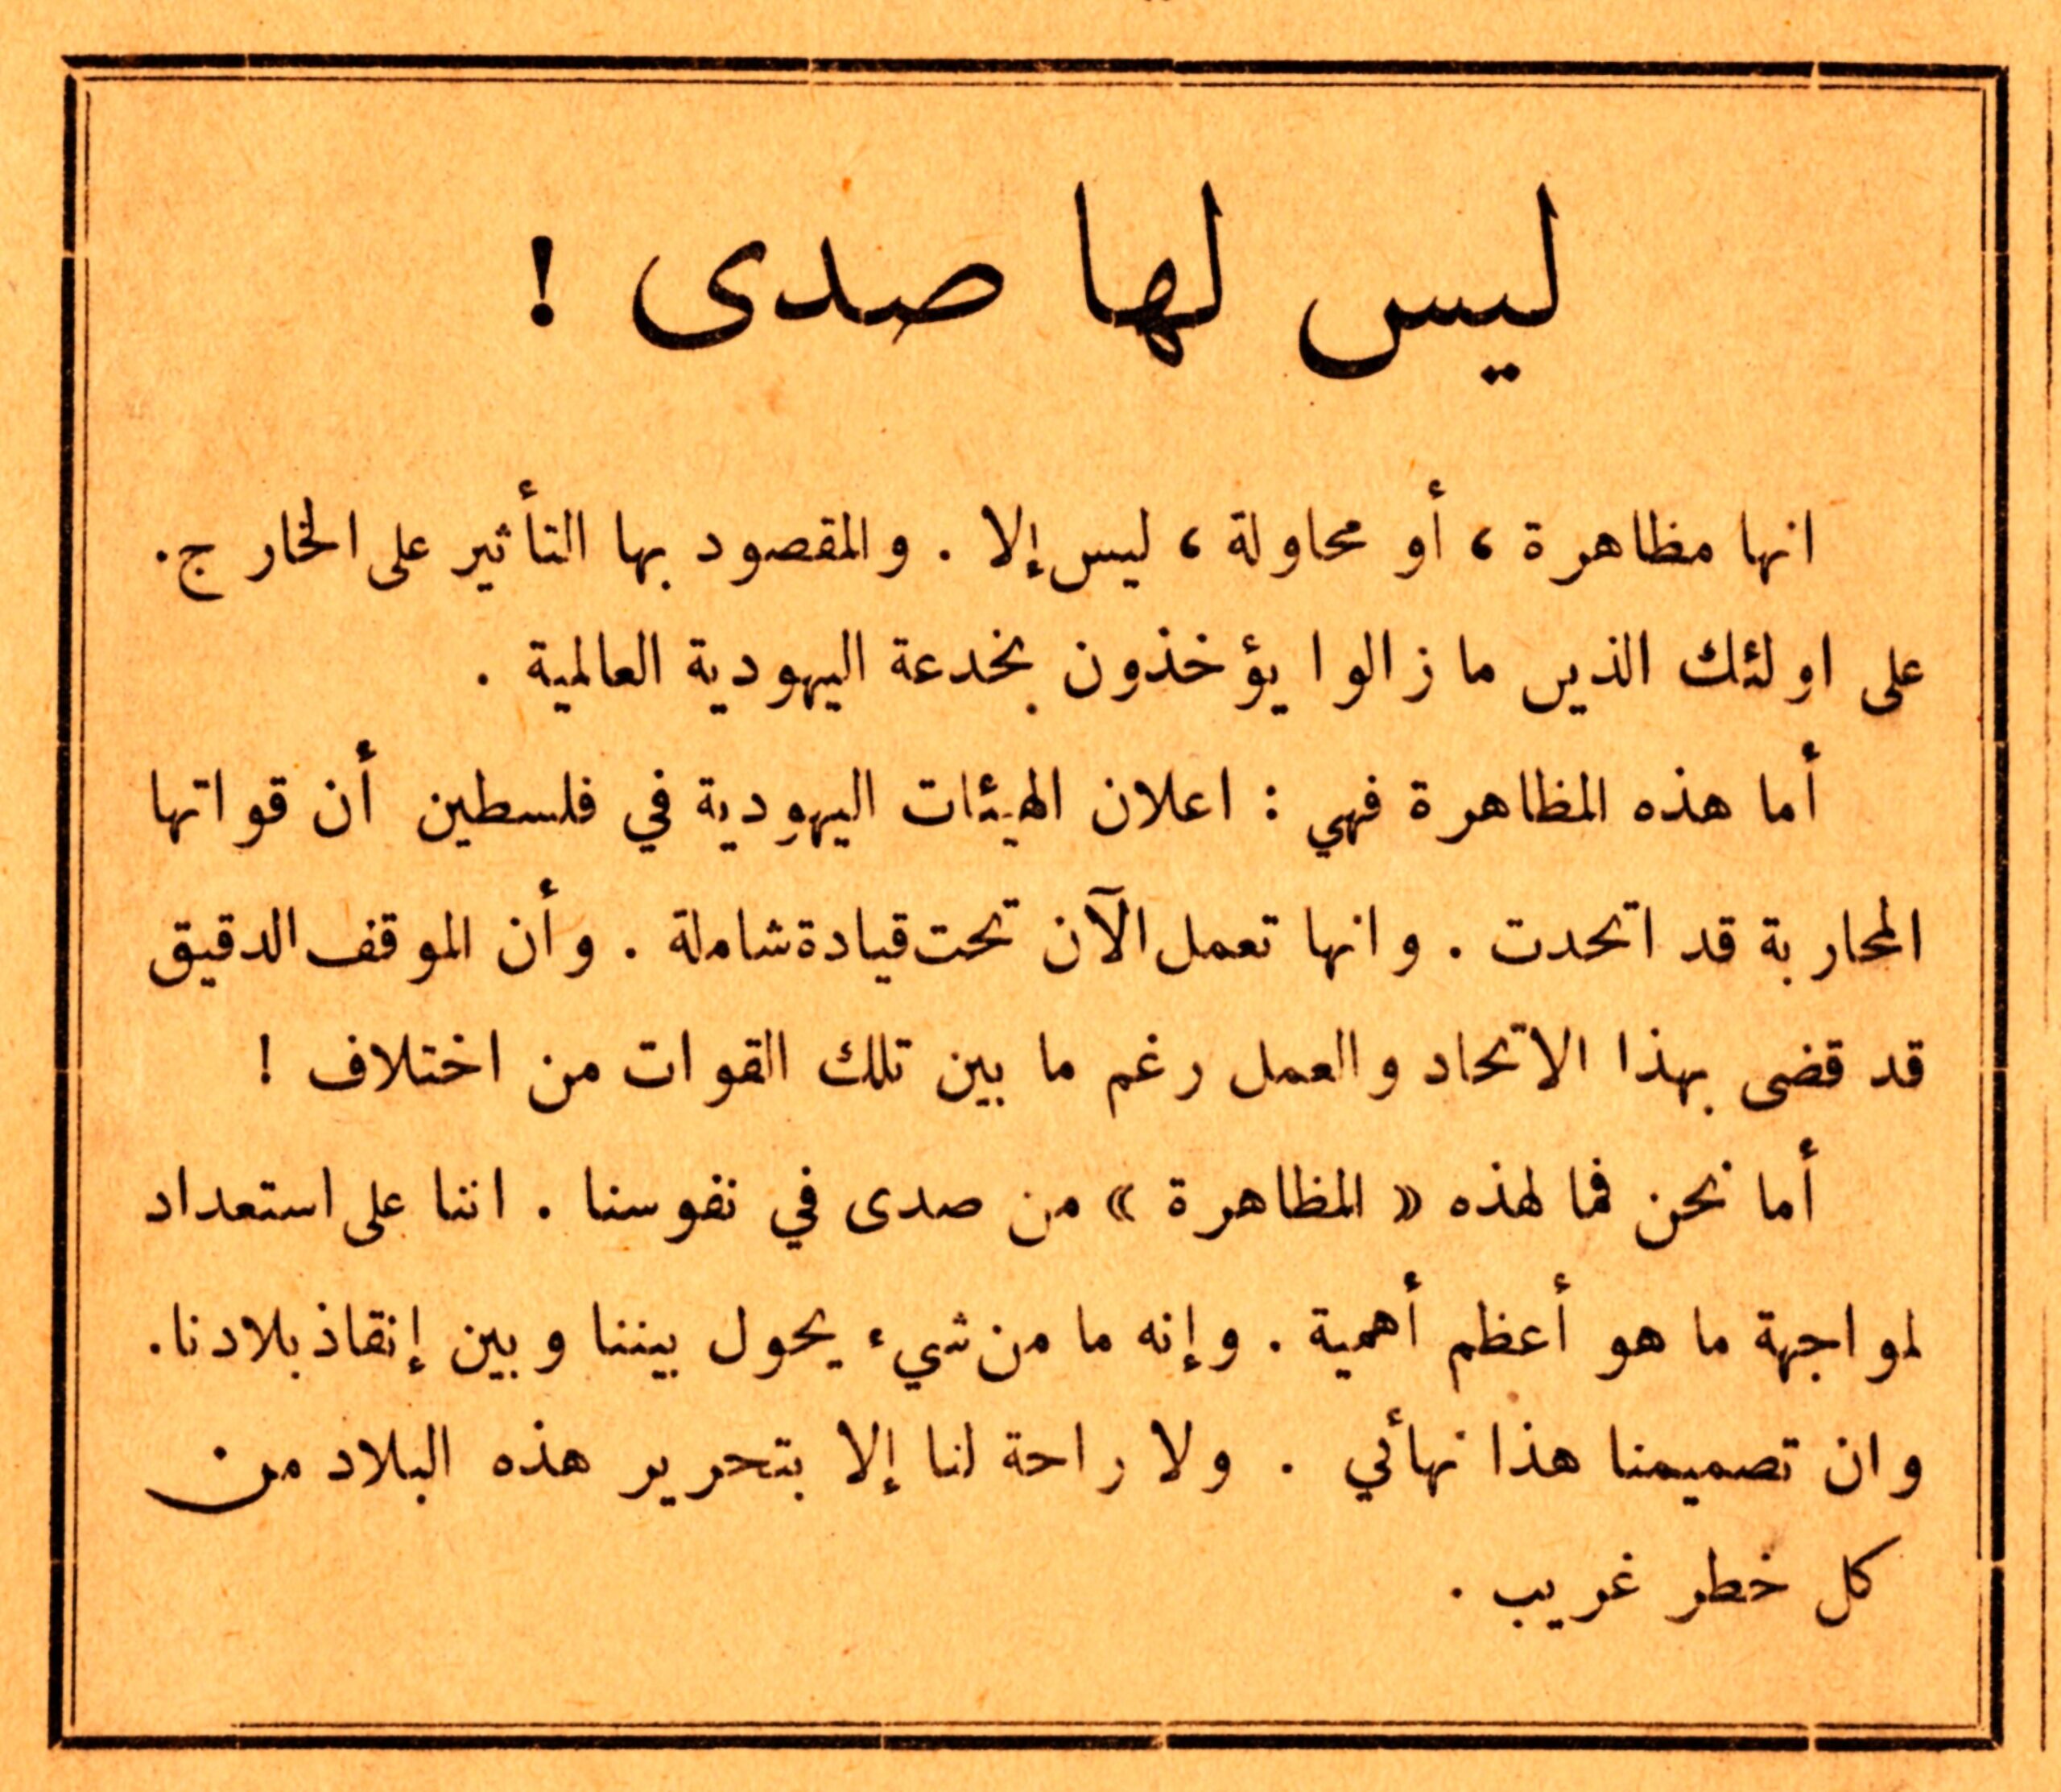 ليس لها صدى !
انها مظاهرة ، أو محاولة ، ليس إلا . والمقصود بها التأثير على الخارج .
على اولئك الذين ما زالوا يؤخذون بخدعة اليهودية العالمية .
أما هذه المظاهرة فهي : اعلان الهيئات اليهودية في فلسطين أن قواتها
المحاربة قد اتحدت . وانها تعمل الآن تحت قيادة شاملة . وأن الموقف الدقيق
قد قضى بهذا الاتحاد والعمل رغم ما بين تلك القوات من اختلاف !
أما نحن فما لهذه « المظاهرة » من صدى في نفوسنا . اننا على استعداد
لمواجهة ما هو أعظم أهمية . وإنه ما من شيء يحول بيننا وبين إنقاذ بلادنا .
وان تصميمنا هذا نهائي . ولا راحة لنا إلا بتحرير هذه البلاد من
كل خطر غريب .